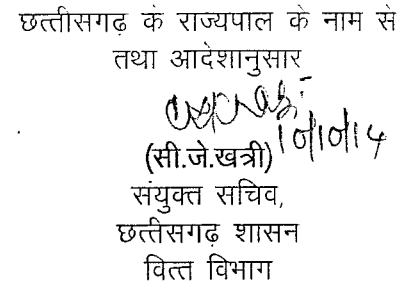 छत्तीसगढ़ के राज्यपाल के नाम से
तथा आदेशानुसार
10/10/14
(सी.जे.खत्री)
संयुक्त सचिव,
छत्तीसगढ़ शासन
वित्त विभाग